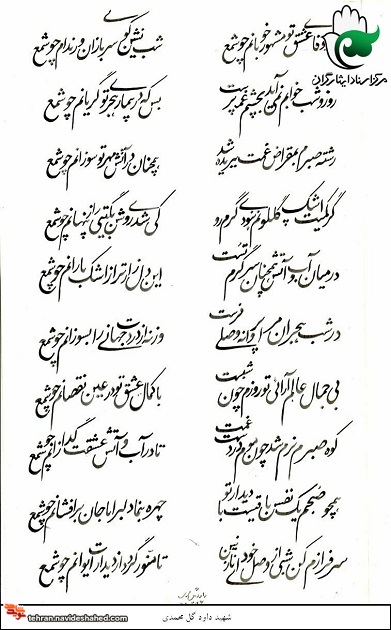 مرکز اسناد ایثارگران
وفای عشق تو مشهور خوبانم چو شمع    شب نشین کوی سربازان و رندانم چو شمع
روز و شب خوابم نمی آید بچشم غم پرست    بس که در بیماری هجر تو گریانم چو شمع
رشته صبرم بمقراض غمت ببریده شد    همچنان در آتش مهر تو سوزانم چو شمع
گر کمیت اشک گلگونم نبودی گرم رو    کی شدی روشن بگیتی راز پنهانم چو شمع
در میان آب و آتش همچنان سرگرم تست    این دل زار نزار اشک بارانم چو شمع
در شب هجران مرا پروانه وصلی فرست    ورنه از دردت جهانی را بسوزانم چو شمع
بی جمال عالم آرای تو روزم چون شبست    با کمال عشق تو در عین نقصانم چو شمع
کوه صبرم نرم شد چون موم در دست غمت    تا در آب و آتش عشقت گدازانم چو شمع
همچو صبحم یک نفس باقیست با دیدار تو    چهره بنما دلبرا تا جان برافشانم چو شمع
سرفرازم کن شبی از وصل خود ای نازنین    تا منور گردد از دیدارت ایوانم چو شمع
شهید داود گل محمدی
tehran.navideshahed.com